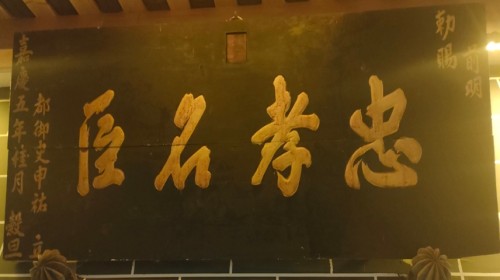 前明
勅賜
忠孝名臣
都御史申祜 立
嘉慶五年桂月 穀旦